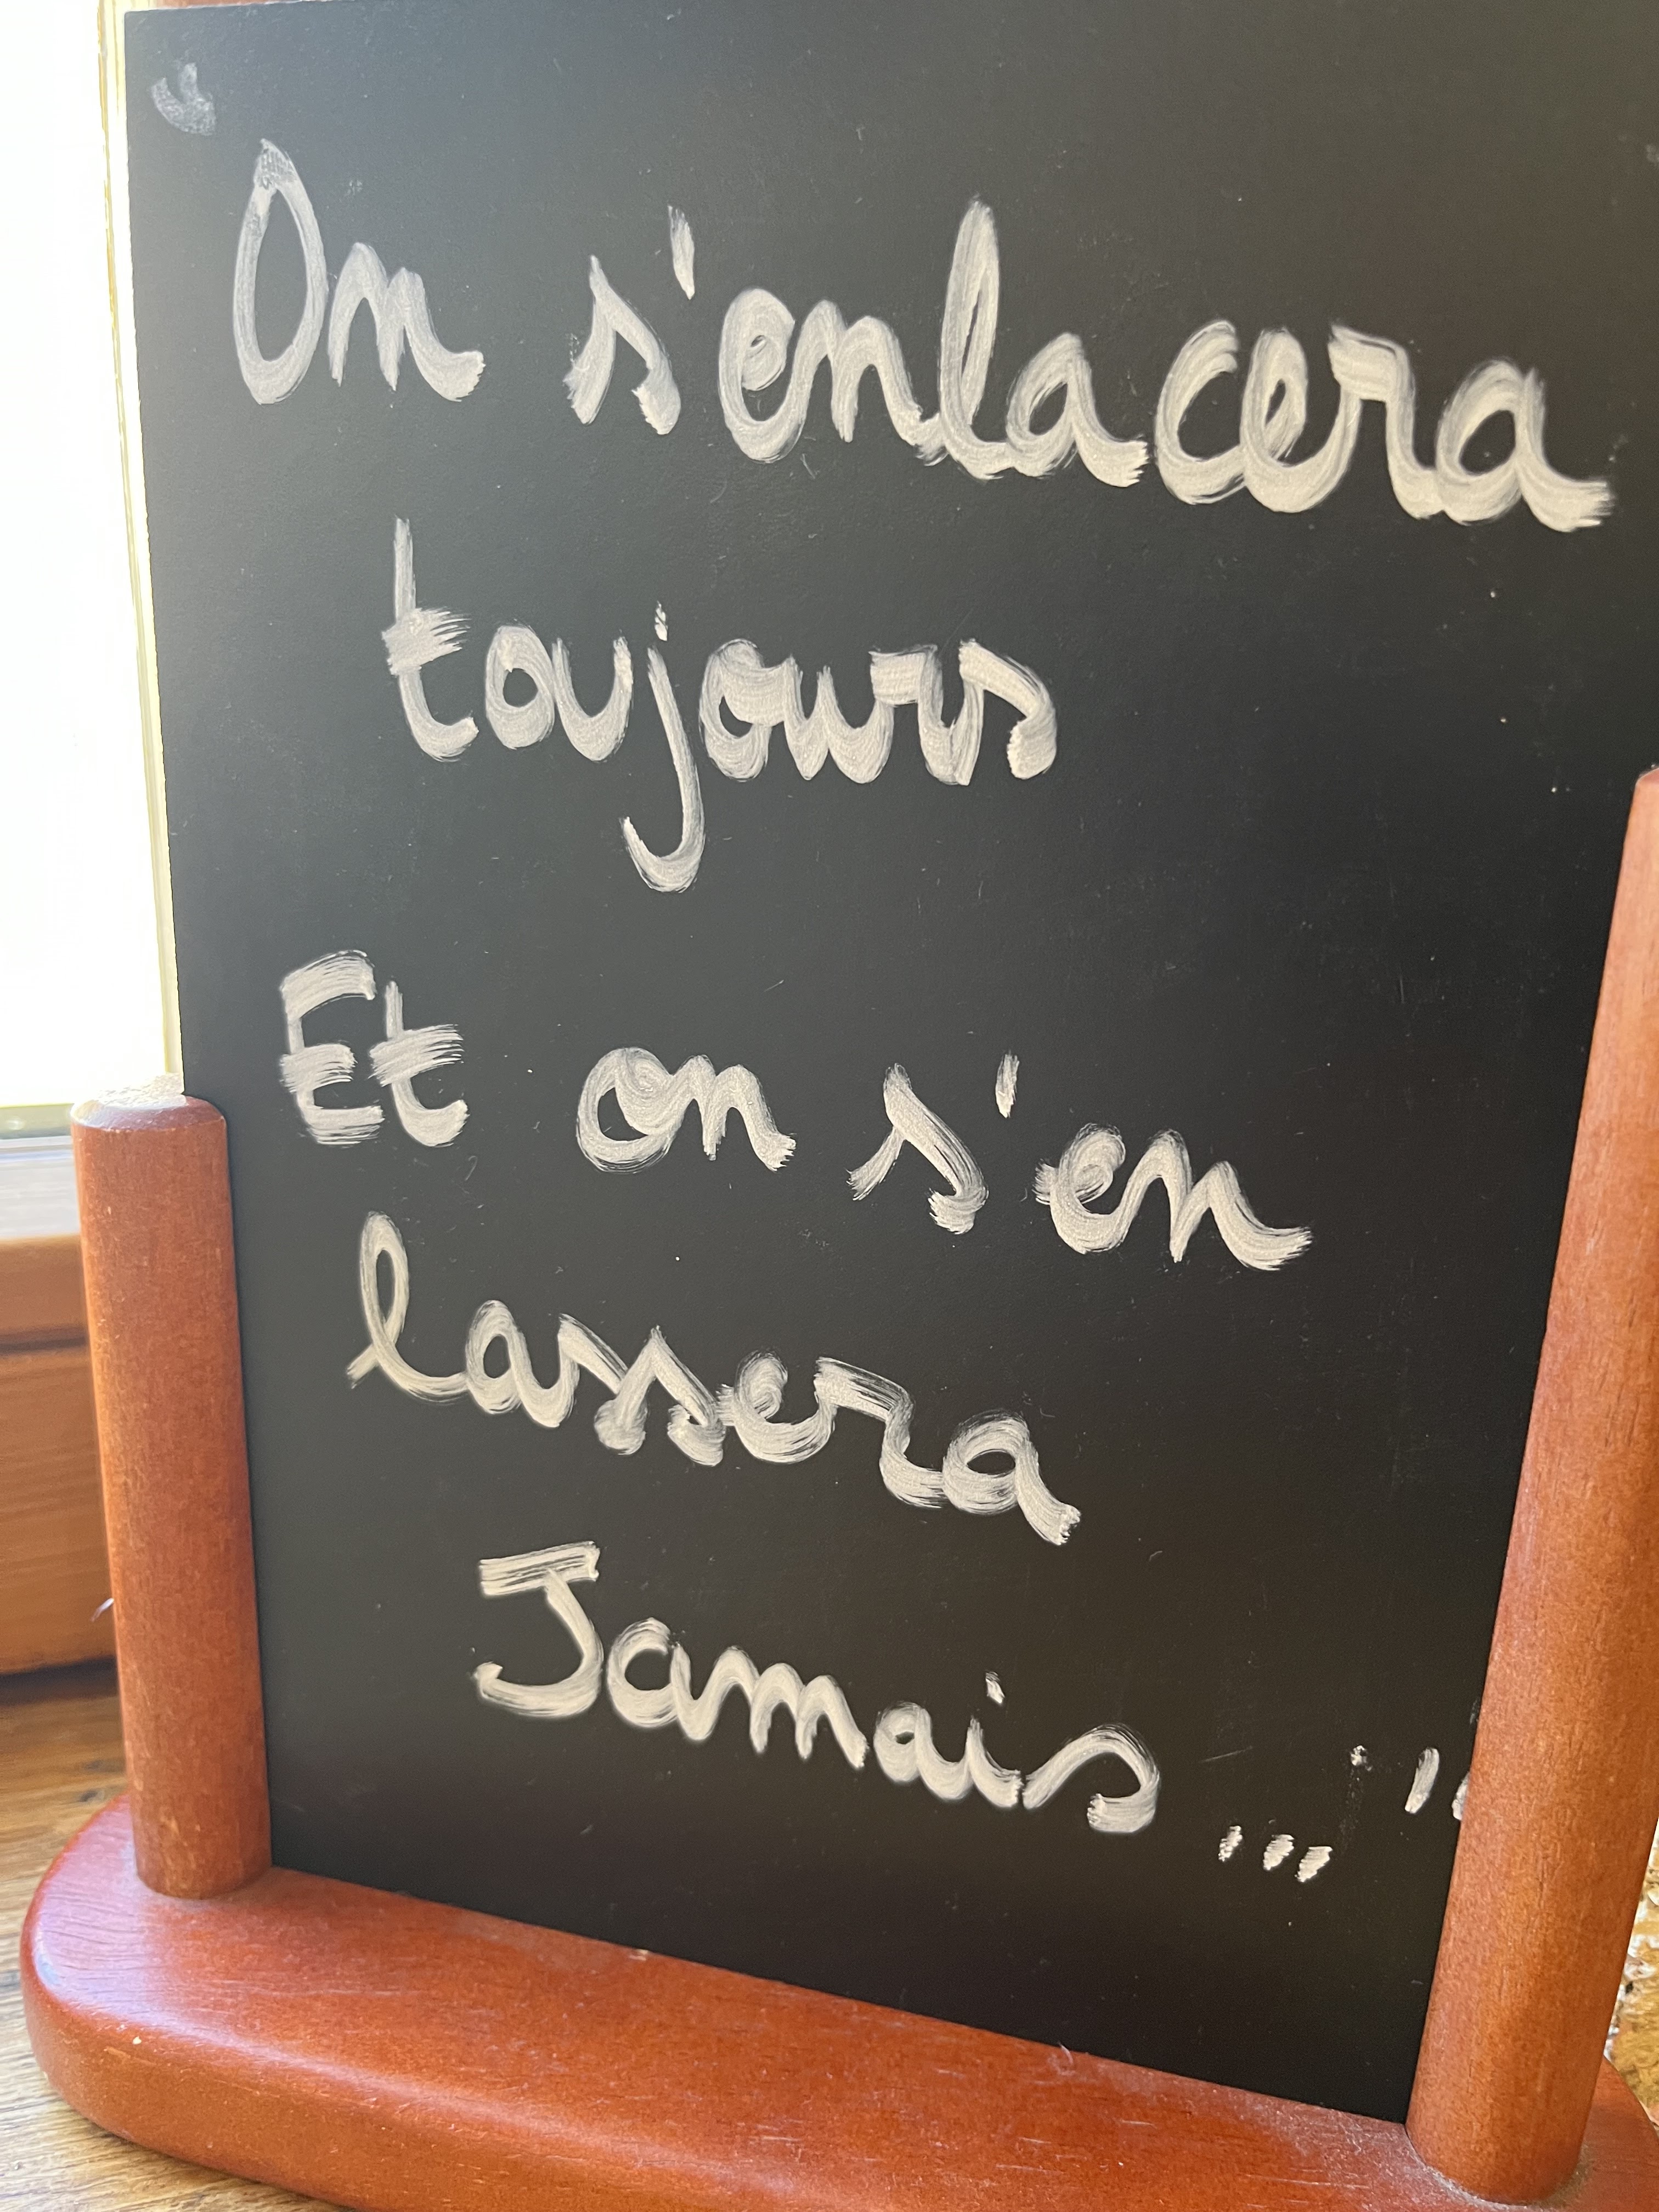 "On s'enlacera
toujours
Et on s'en
lassera
Jamais..."